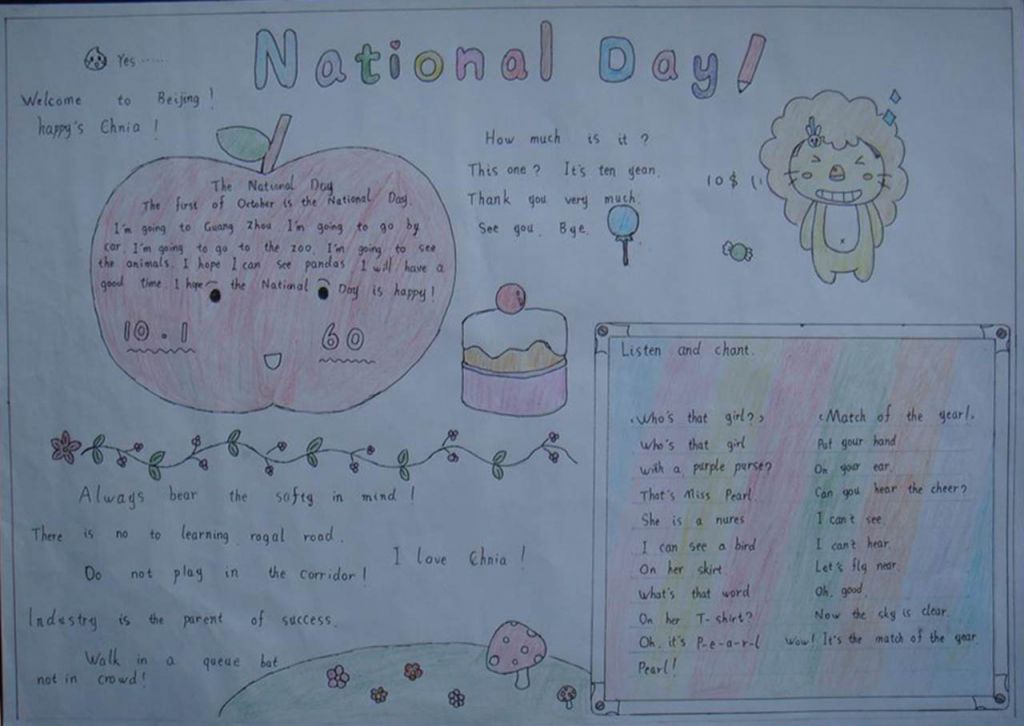 National Day!
Yes ......
Welcome to Beijing!
happy's Chnia!
The National Day
The first of October is the National Day.
I'm going to Guang Zhou I'm going to go by
car. I'm going to go to the zoo. I'm going to see
the animals. I hope I can see pandas I will have a
good time. I hope the National Day is happy!
10.1
60
How much is it?
This one? It's ten yean.
Thank you very much.
See you. Bye.
10$
Always bear the safty in mind!
There is no to learning rogal road.
I love Chnia!
Do not play in the corridor!
Industry is the parent of success.
Walk in a queue bat
not in crowd!
Listen and chant.
<Who's that girl?>
Who's that girl
With a purple purse?
That's Miss Pearl.
She is a nures
I can see a bird
On her skirt
What's that word
On her T-shirt?
Oh, it's P-e-a-r-l
Pearl!
<Match of the year!.
Put your hand
On your ear.
Can you hear the cheer?
I can't see.
I can't hear.
Let's fly near.
Oh, good.
Now the sky is clear.
Wow! It's the match of the year.